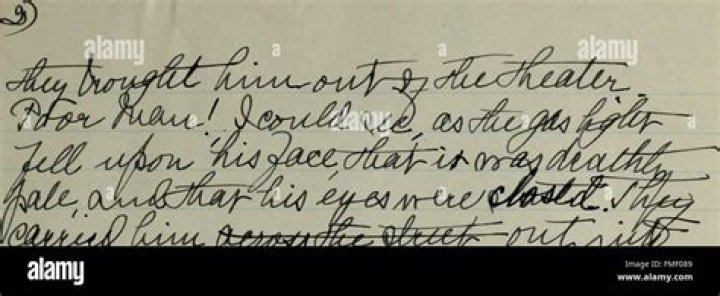 9)
they brought him out of the theater.
Poor man! I could see, as the gas light
fell upon his face, that it was deathly
pale, and that his eyes were closed. They
carried him across the street out into
alamy
Image ID: FMF089
www.alamy.com